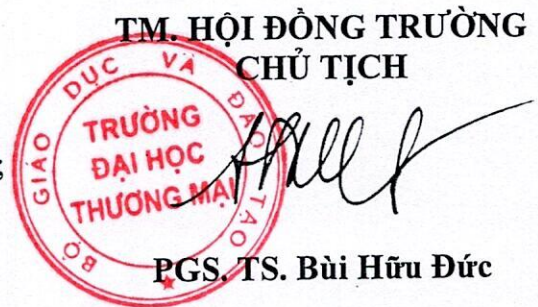 TM. HỘI ĐỒNG TRƯỜNG
CHỦ TỊCH
BỘ GIÁO DỤC VÀ ĐÀO TẠO
TRƯỜNG
ĐẠI HỌC
THƯƠNG MẠI
PGS. TS. Bùi Hữu Đức